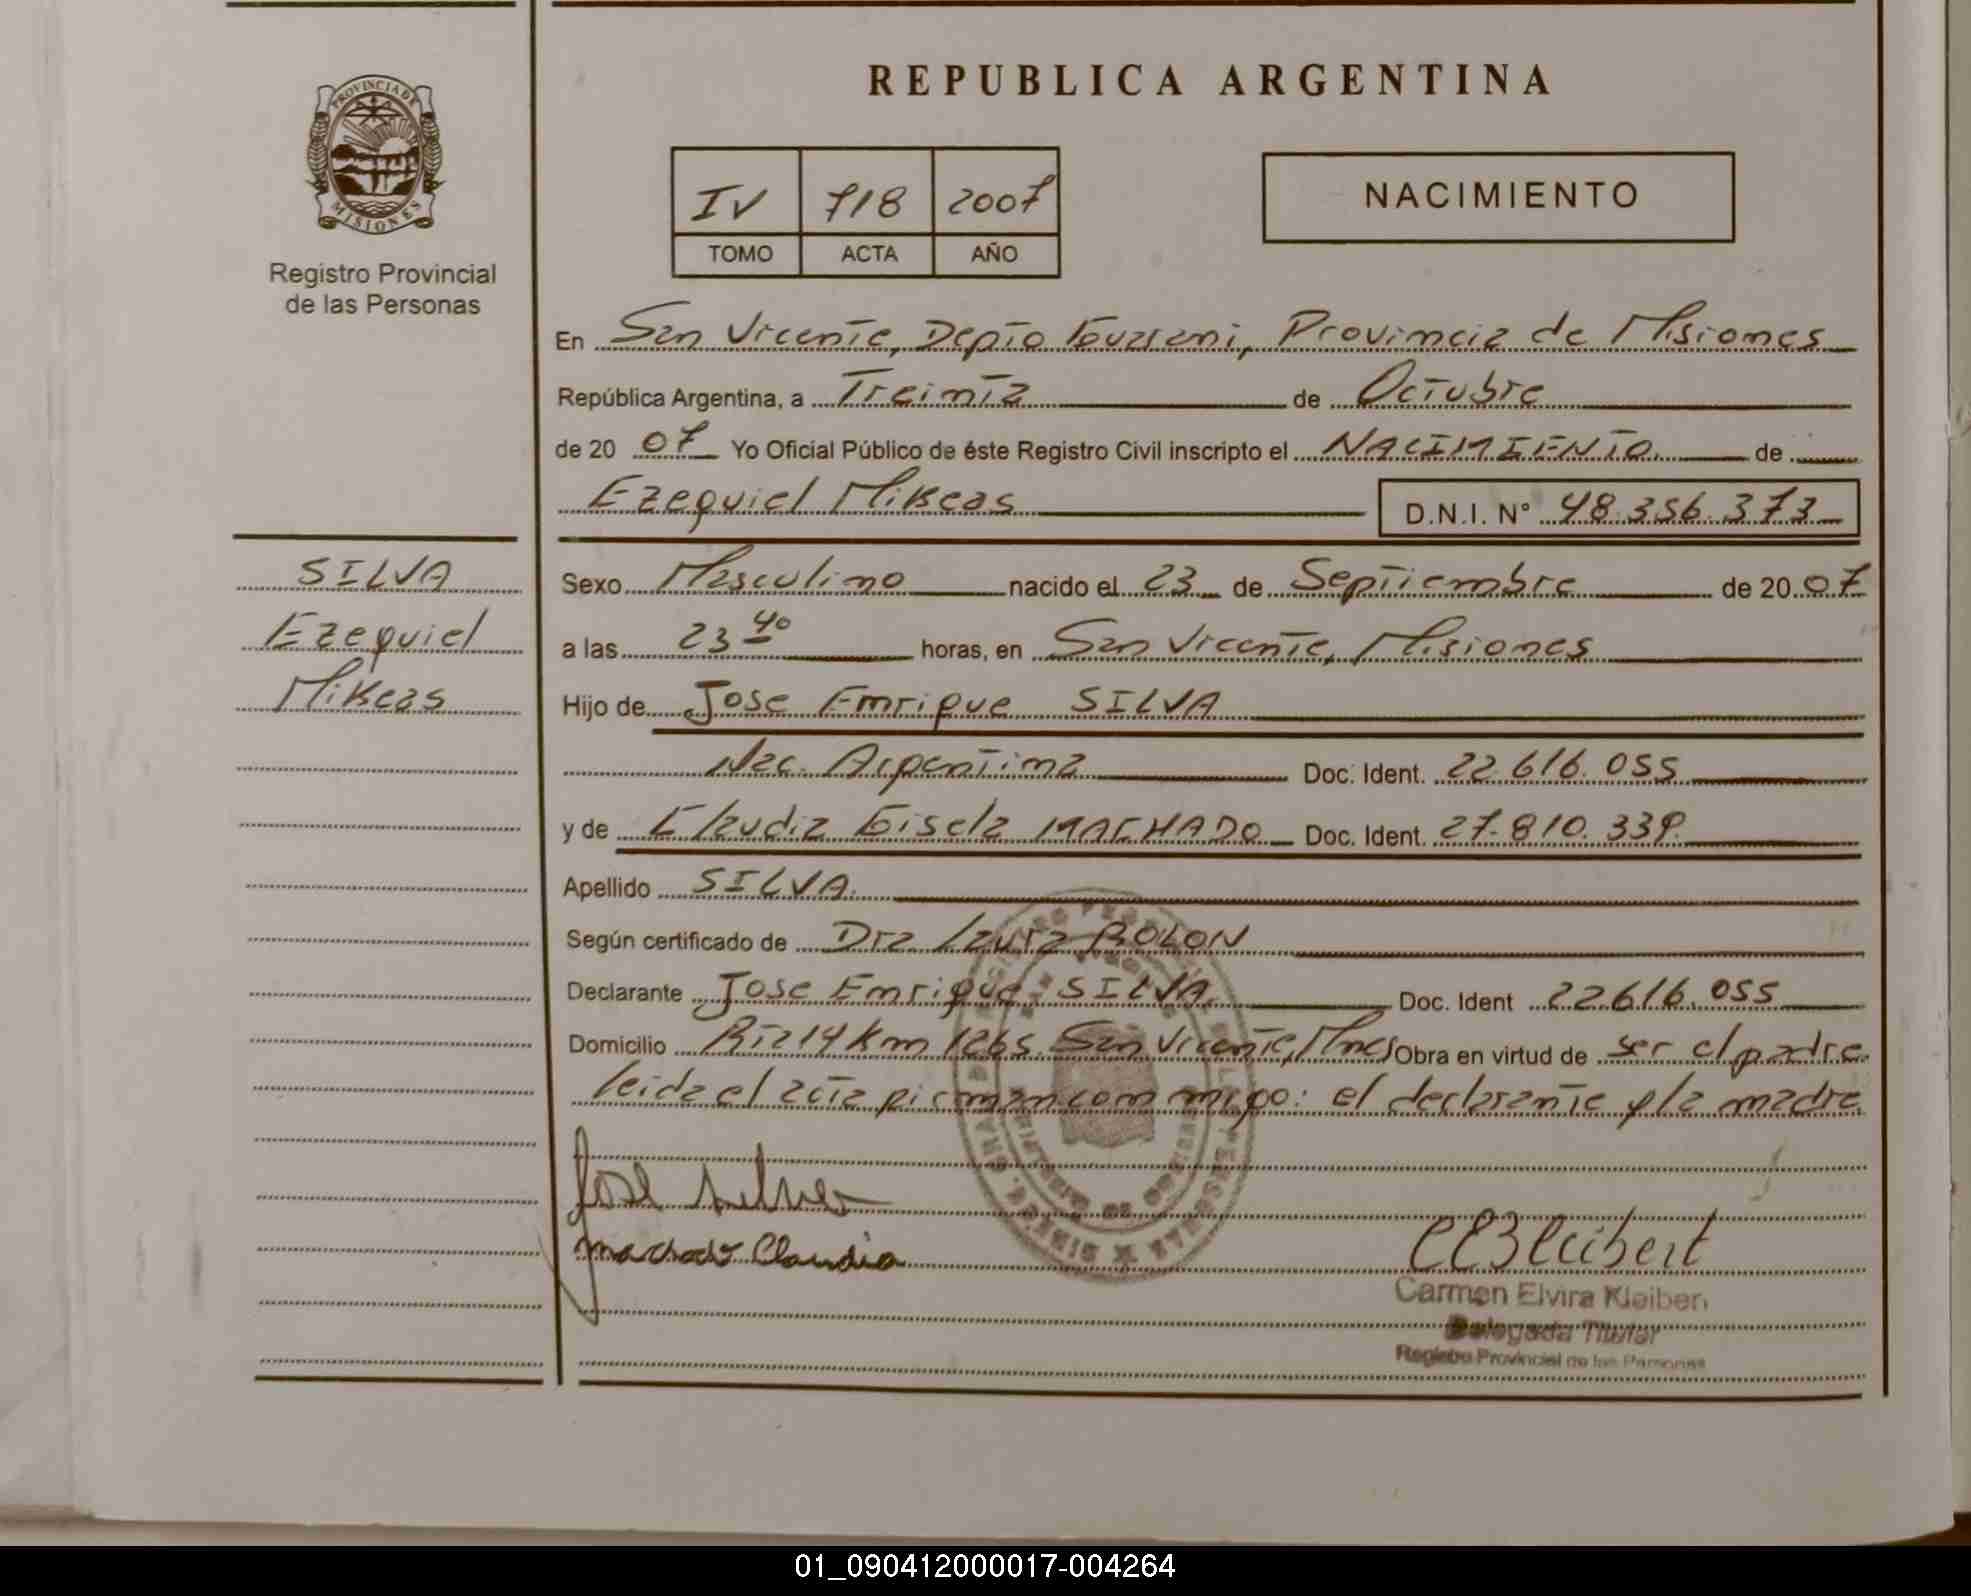 REPUBLICA ARGENTINA
PROVINCIA DE
MISIONES
Registro Provincial
de las Personas
IV 718 2007
TOMO ACTA AÑO
NACIMIENTO
En San Vicente, Depto Guarani, Provincia de Misiones
República Argentina, a Treinta de Octubre
de 2007 Yo Oficial Público de éste Registro Civil inscripto el NACIMIENTO de
Ezequiel Mikeas D.N.I. N° 48.356.373
SILVA
Ezequiel
Mikeas
Sexo Masculino nacido el 23 de Septiembre de 2007
a las 23 40 horas, en San Vicente, Misiones
Hijo de Jose Enrique SILVA
Nac. Argentina Doc. Ident. 22.616.055
y de Claudia Gisela MACHADO Doc. Ident. 27.810.339.
Apellido SILVA.
Según certificado de Dra Laura ROLON
Declarante Jose Enrique SILVA Doc. Ident 22.616.055
Domicilio Rta 14 Km 1265 San Vicente, Mnes Obra en virtud de ser el padre
leida el acta firman con migo: el declarante y la madre
Jose Silva
Machado Claudia
CEKleibert
Carmen Elvira Kleibert
Delegada Titular
Registro Provincial de las Personas
01_090412000017-004264